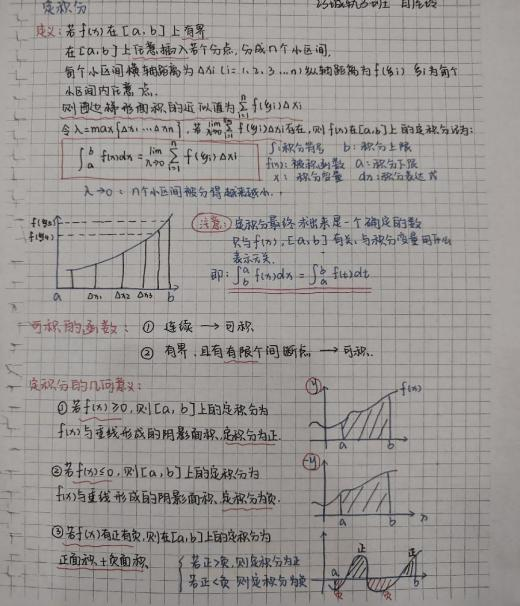 定积分
定义：若f(x)在[a,b]上有界
在[a,b]上任意插入若干分点，分成n个小区间，
每个小区间横轴距离为Δxi(i=1,2,3...n)纵轴距离为f(ξi) ξi为每个
小区间内任意点.
则曲边梯形面积的近似值为∑f(ξi)Δxi n i=1
令λ=max{Δx1,...Δxn}，若 lim λ→0 ∑ n i=1 f(ξi)Δxi存在，则f(x)在[a,b]上的定积分记为：
∫ b a f(x)dx = lim λ→0 ∑ n i=1 f(ξi)Δxi
∫：积分符号 b：积分上限
f(x)：被积函数 a：积分下限
x：积分变量 dx：积分表达式
λ→0：n个小区间被分得越来越小.
f(ξ3)
f(ξ2)
a Δx1 Δx2 Δx3 b
注意：定积分最终求出来是一个确定的数
只与f(x)，[a,b]有关，与积分变量用
表示无关.
即：∫ a b f(x)dx = ∫ b a f(t)dt
可积的函数：① 连续 → 可积
② 有界，且有有限个间断点 → 可积.
定积分的几何意义：
①若f(x)≥0，则[a,b]上的定积分为
f(x)与垂线形成的阴影面积，定积分为正.
y f(x)
a b
②若f(x)≤0，则[a,b]上的定积分为
f(x)与垂线形成的阴影面积，定积分为负.
-y
a b x
③若f(x)有正有负，则在[a,b]上的定积分为
正面积+负面积.
若正>负，则定积分为正
若正<负 则定积分为负
a 正 正 b
负 负